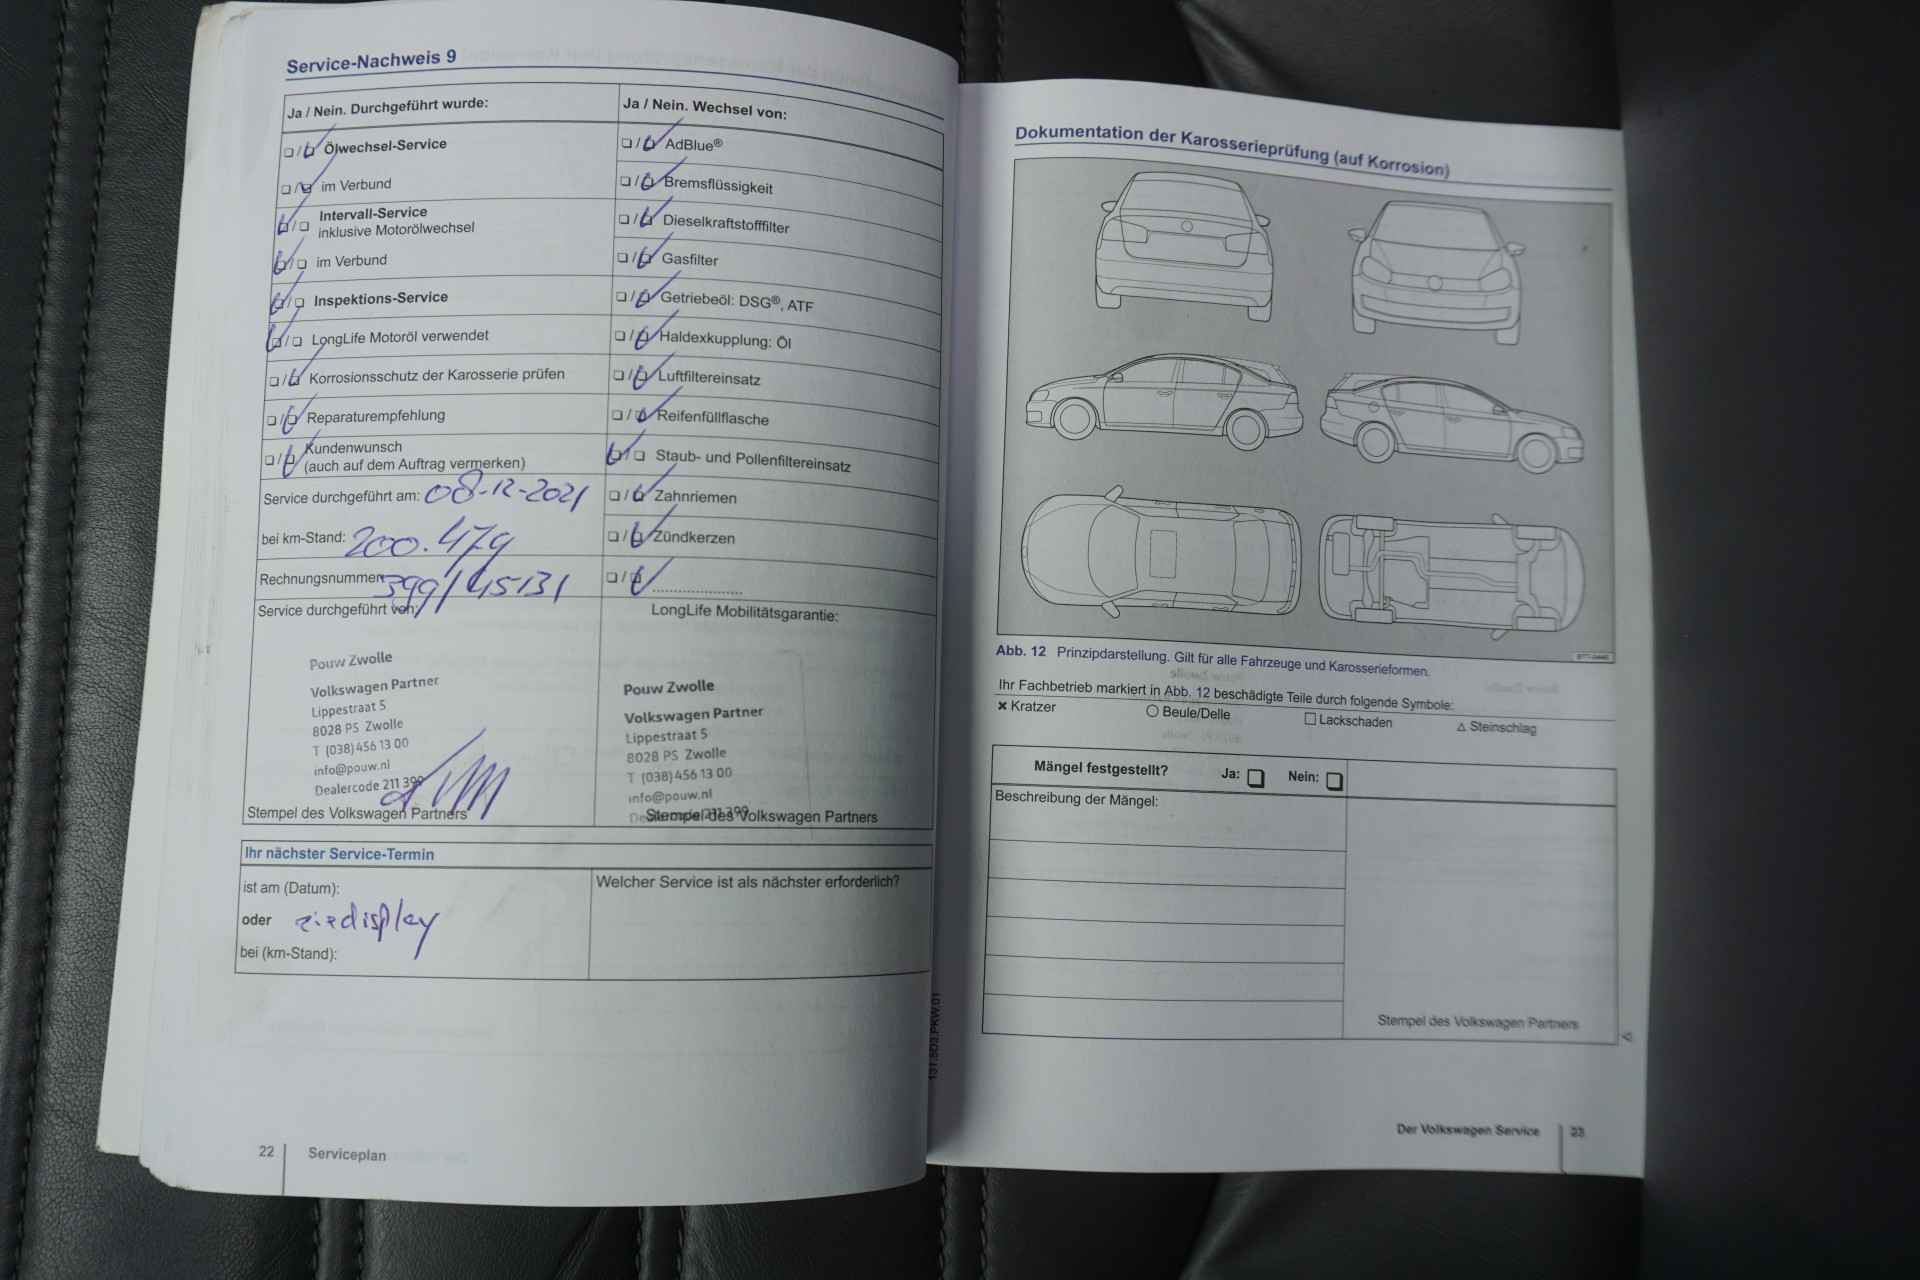 Service-Nachweis 9
Ja / Nein. Durchgeführt wurde:
Ölwechsel-Service
im Verbund
Intervall-Service
inklusive Motorölwechsel
im Verbund
Inspektions-Service
LongLife Motoröl verwendet
Korrosionsschutz der Karosserie prüfen
Reparaturempfehlung
Kundenwunsch
(auch auf dem Auftrag vermerken)
Service durchgeführt am: 08-12-2021
bei km-Stand: 200.479
Rechnungsnummer: 399/45131
Service durchgeführt von:
Pouw Zwolle
Volkswagen Partner
Lippestraat 5
8028 PS Zwolle
T (038) 456 13 00
info@pouw.nl
Dealercode 211 399
Stempel des Volkswagen Partners
Ja / Nein. Wechsel von:
AdBlue®
Bremsflüssigkeit
Dieselkraftstofffilter
Gasfilter
Getriebeöl: DSG®, ATF
Haldexkupplung: Öl
Luftfiltereinsatz
Reifenfüllflasche
Staub- und Pollenfiltereinsatz
Zahnriemen
Zündkerzen
LongLife Mobilitätsgarantie:
Pouw Zwolle
Volkswagen Partner
Lippestraat 5
8028 PS Zwolle
T (038) 456 13 00
info@pouw.nl
Dealercode 211 399
Stempel des Volkswagen Partners
Ihr nächster Service-Termin
ist am (Datum):
oder zie display
bei (km-Stand):
Welcher Service ist als nächster erforderlich?
131.5D3.PKW.01
22 Serviceplan
Dokumentation der Karosserieprüfung (auf Korrosion)
Abb. 12 Prinzipdarstellung. Gilt für alle Fahrzeuge und Karosserieformen.
Ihr Fachbetrieb markiert in Abb. 12 beschädigte Teile durch folgende Symbole:
× Kratzer ○ Beule/Delle □ Lackschaden △ Steinschlag
Mängel festgestellt? Ja: Nein:
Beschreibung der Mängel:
Stempel des Volkswagen Partners
Der Volkswagen Service 23